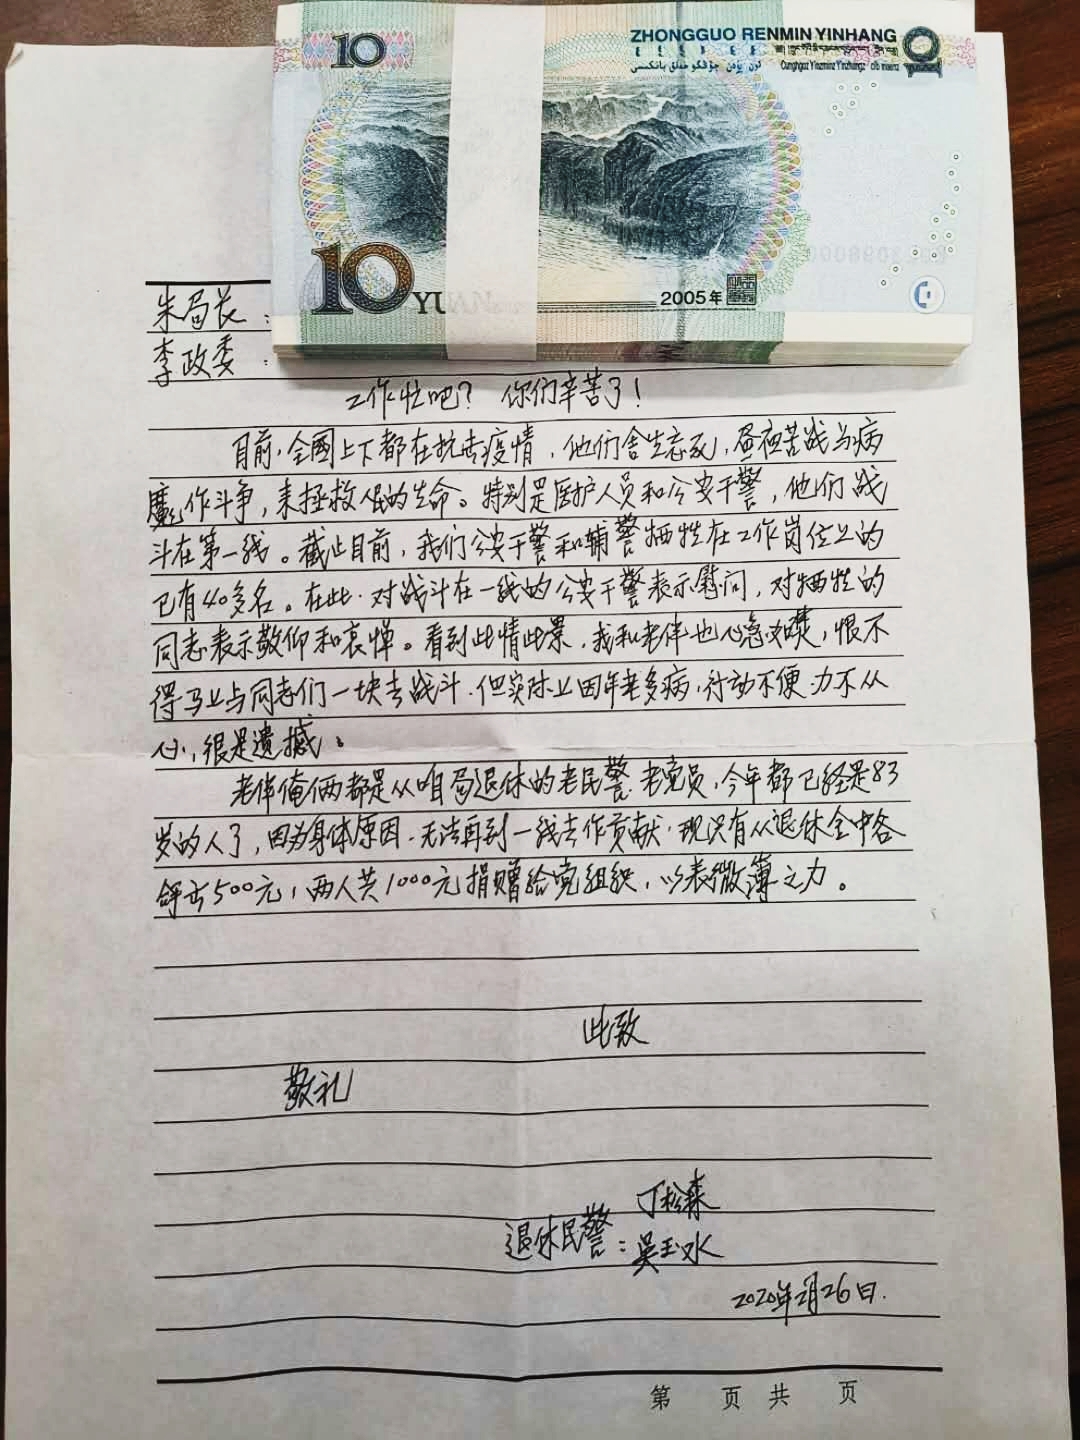 10
ZHONGGUO RENMIN YINHANG
10
YU
2005年
朱局长：
李政委：
工作忙吧？ 你们辛苦了！
目前，全國上下都在抗击疫情，他们舍生忘死，昼夜苦战与病
魔作斗争，来拯救人民的生命。特别是医护人员和公安干警，他们战
斗在第一线。截止目前，我们公安干警和辅警牺牲在工作岗位上的
已有40多名。在此，对战斗在一线的公安干警表示慰问，对牺牲的
同志表示敬仰和哀悼。看到此情此景，我和老伴也心急如焚，恨不
得马上与同志们一块去战斗，但实际上因年老多病，行动不便，力不从
心，很是遗撼。
老伴俺俩都是从咱局退休的老民警、老党员，今年都已经是83
岁的人了，因为身体原因，无法再到一线去作贡献，现只有从退休金中各
拿出500元，两人共1000元捐赠给党组织，以表微薄之力。
此致
敬礼
丁松森
退休民警：吴玉水
2020年2月26日.
第 页 共 页